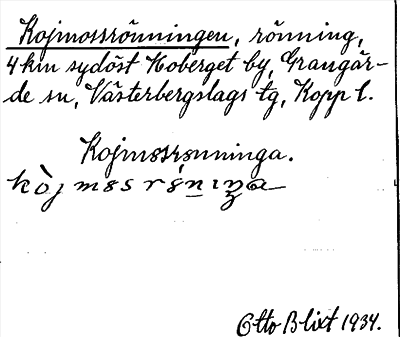 Kojmossrönningen, rönning,
4 km sydöst Hoberget by, Grangär-
de sn, Västerbergslags tg, Kopp l.
Kojmossrönninga.
Otto Blixt 1934.